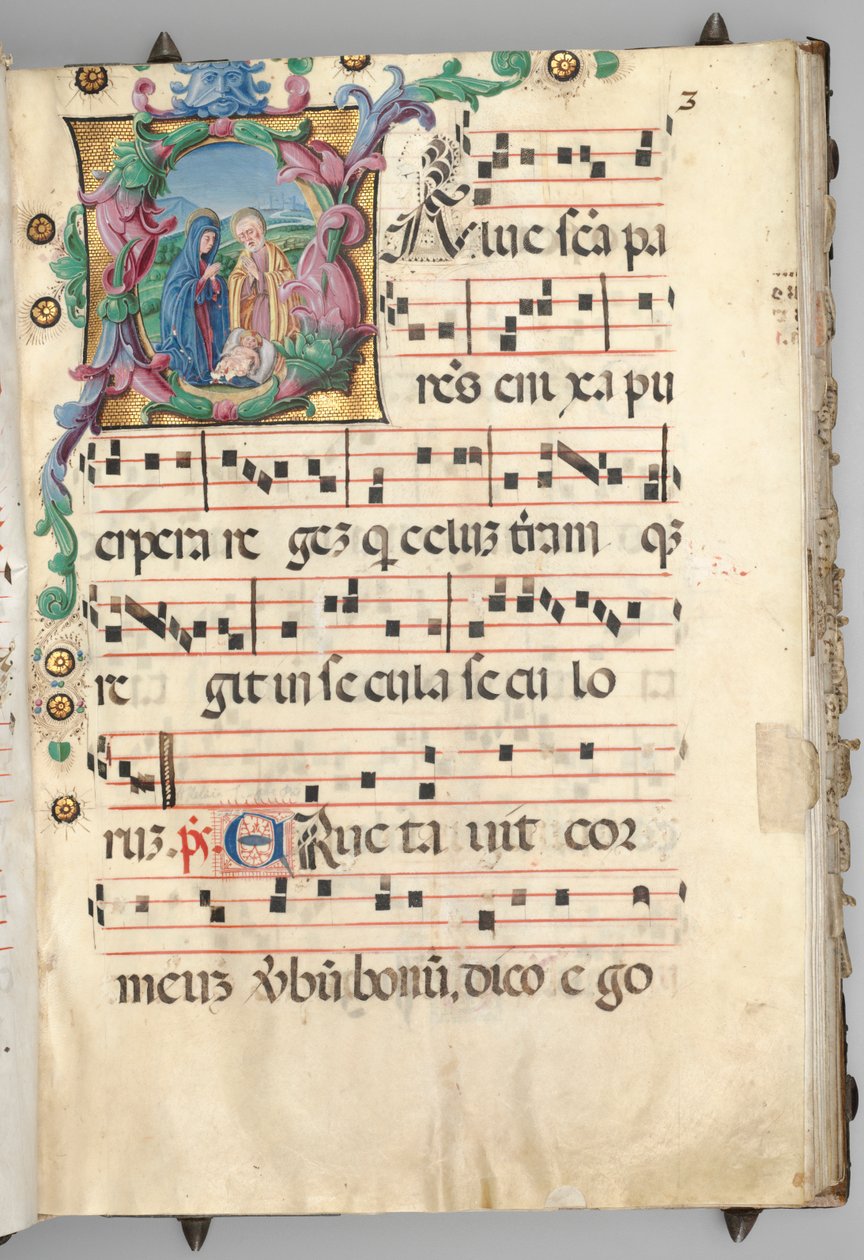 3
SAlue scā pa
rēs enixa pu
erpera regeʒ q̇ celuʒ tr̄am qʒ
re git in secula seculo
ruʒ. ps. ERuctauit cor
meuʒ v̄bū bonū, dico ego